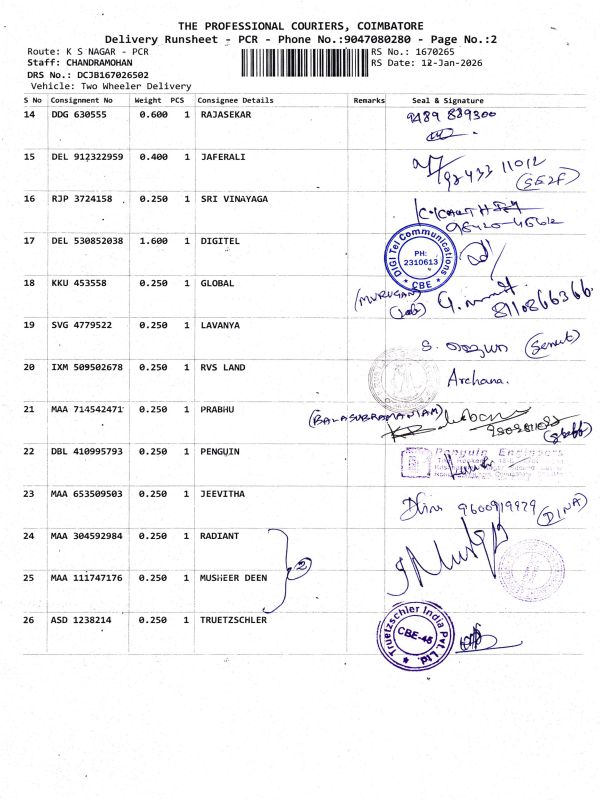 THE PROFESSIONAL COURIERS, COIMBATORE
Delivery Runsheet - PCR - Phone No.:9047080280 - Page No.:2
Route: K S NAGAR - PCR
RS No.: 1670265
Staff: CHANDRAMOHAN
RS Date: 12-Jan-2026
DRS No.: DCJB167026502
Vehicle: Two Wheeler Delivery
S No Consignment No Weight PCS Consignee Details Remarks Seal & Signature
14 DDG 630555 0.600 1 RAJASEKAR 9489 889300
15 DEL 912322959 0.400 1 JAFERALI 98433 11012 (SELF)
16 RJP 3724158 0.250 1 SRI VINAYAGA
17 DEL 530852038 1.600 1 DIGITEL DIGI Tel Communications PH: 2310613 CBE
18 KKU 453558 0.250 1 GLOBAL (MURUGAN) 8110866366
19 SVG 4779522 0.250 1 LAVANYA S.
20 IXM 509502678 0.250 1 RVS LAND Archana.
21 MAA 714542471 0.250 1 PRABHU (BALASUBRAMANIAM) (Staff)
22 DBL 410995793 0.250 1 PENGUIN Penguin Engineers
23 MAA 653509503 0.250 1 JEEVITHA 9600919979 (DINA)
24 MAA 304592984 0.250 1 RADIANT
25 MAA 111747176 0.250 1 MUSHEER DEEN
2
26 ASD 1238214 0.250 1 TRUETZSCHLER Truetzschler India Pvt. Ltd CBE-45